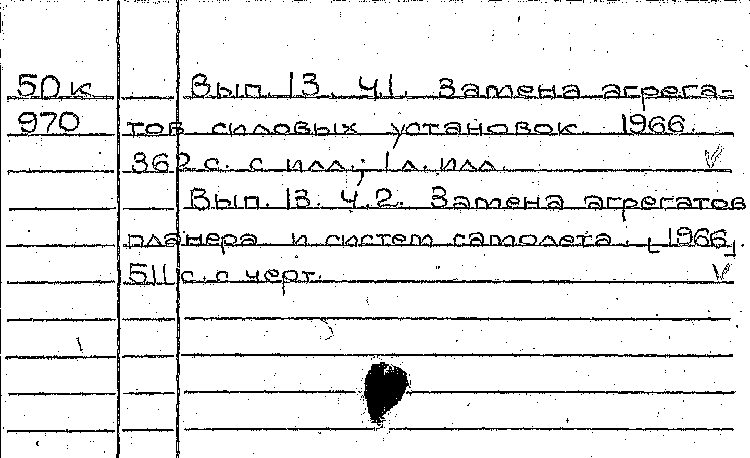 50к Вып. 13. Ч.1. Замена агрега-
970 тов силовых установок. 1966.
362 с. с илл.; 1 л. илл.
Вып. 13. Ч.2. Замена агрегатов
планера и систем самолета. [1966].
511 с. с черт.